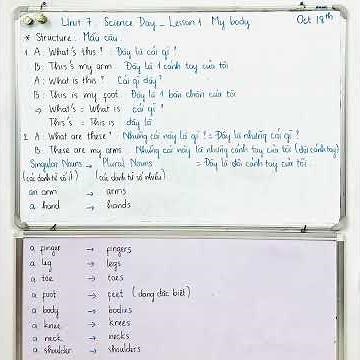 Unit 7 Science Day _ Lesson 1 My body Oct 18th
* Structure: Mẫu câu
1. A: What's this? Đây là cái gì?
B: This is my arm. Đây là 1 cánh tay của tôi
A: What is this? Cái gì đây?
B: This is my foot. Đây là 1 bàn chân của tôi
→ What's = What is cái gì?
This's = This is đây là
2. A: What are these? Những cái này là gì? = Đây là những cái gì?
B: These are my arms. Những cái này là những cánh tay của tôi (đôi cánh tay)
Singular Nouns → Plural Nouns = Đây là đôi cánh tay của tôi
(các danh từ số ít) (các danh từ số nhiều)
an arm → arms
a hand → hands
a finger → fingers
a leg → legs
a toe → toes
a foot → feet (dạng đặc biệt)
a body → bodies
a knee → knees
a neck → necks
a shoulder → shoulders